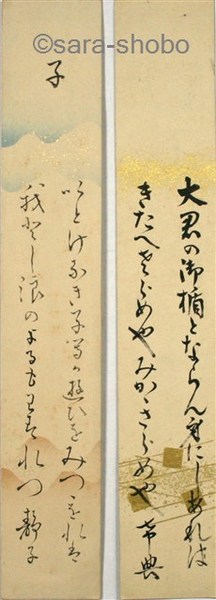 ©sara-shobo
大君の御楯とならん身にしあれは
きたへさらめやみかゝさらめや 希典
子
いとけなき子等か遊ひをみつゝをれは
我とし浪のよるもわすれつ 静子